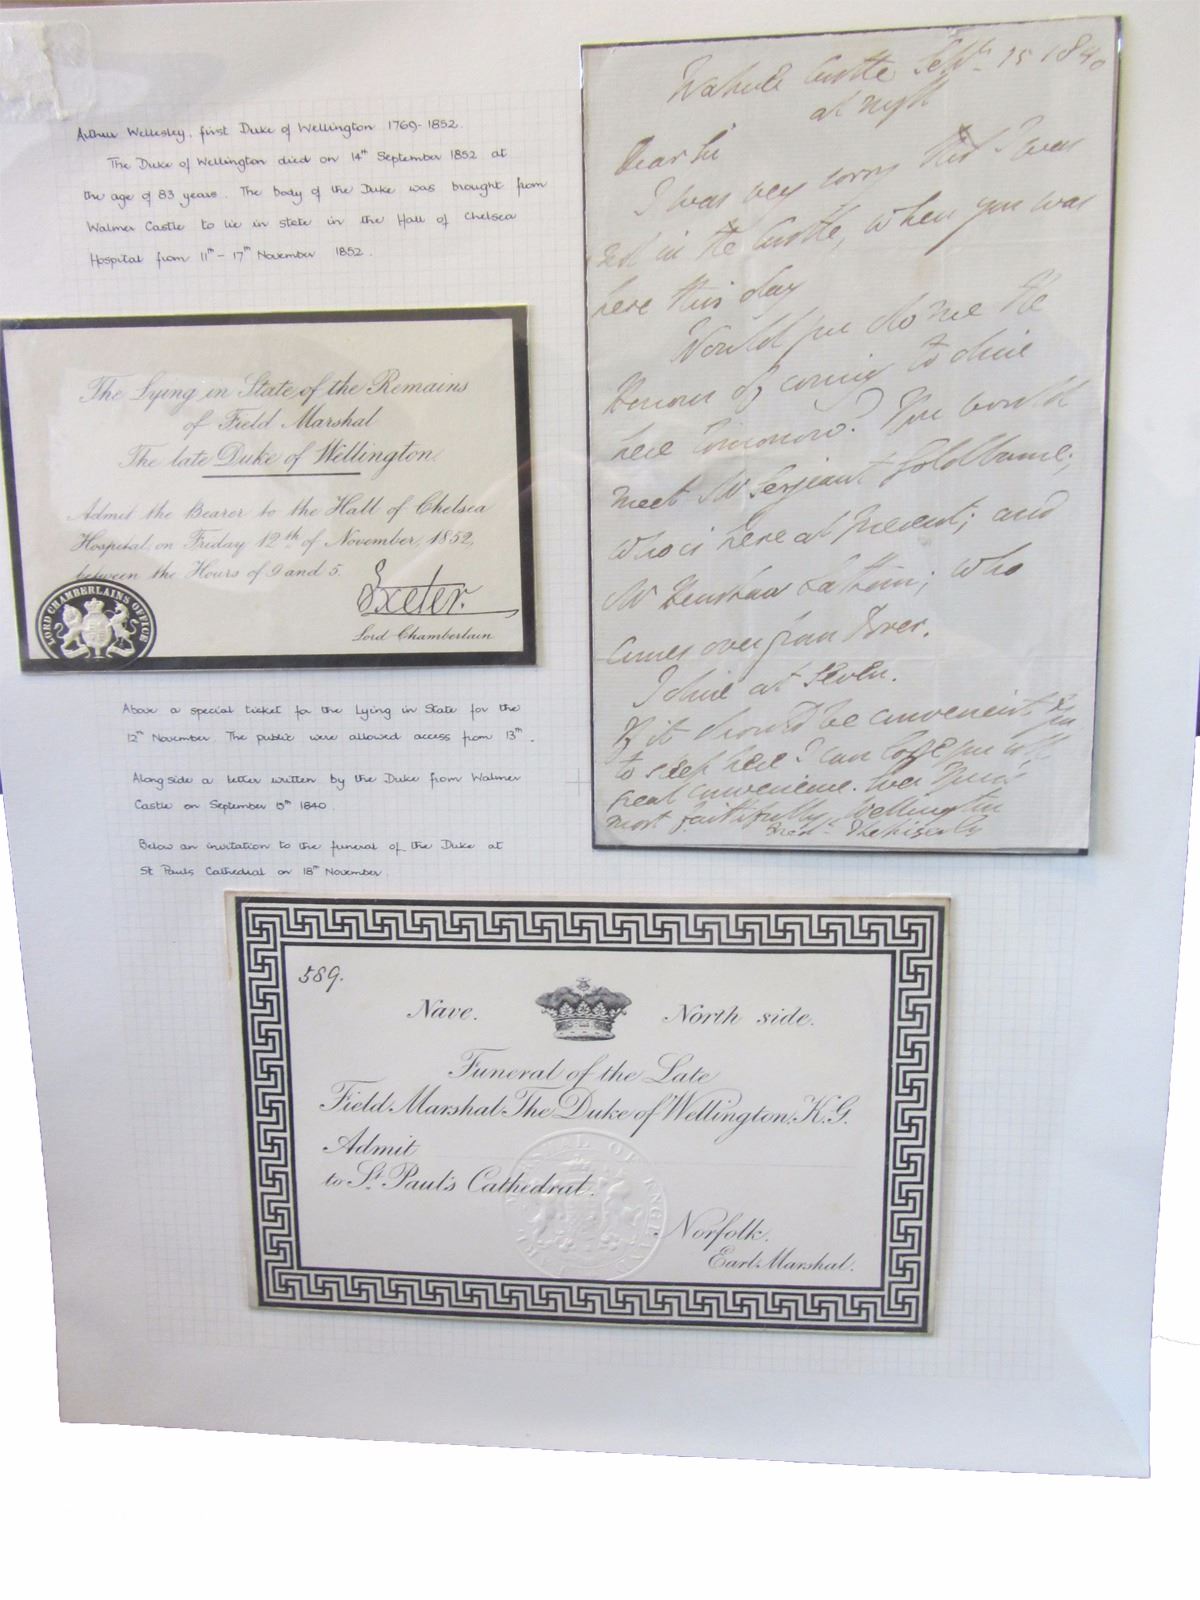 Arthur Wellesley, first Duke of Wellington 1769-1852.
The Duke of Wellington died on 14th September 1852 at
the age of 83 years. The body of the Duke was brought from
Walmer Castle to lie in state in the Hall of Chelsea
Hospital from 11th - 17th November 1852.
The Lying in State of the Remains
of Field Marshal
The late Duke of Wellington.
Admit the Bearer to the Hall of Chelsea
Hospital, on Friday 12th of November, 1852,
between the Hours of 9 and 5.
Exeter.
Lord Chamberlain
LORD CHAMBERLAINS OFFICE
Above a special ticket for the Lying in State for the
12th November. The public were allowed access from 13th.
Along side a letter written by the Duke from Walmer
Castle on September 15th 1840.
Below an invitation to the funeral of the Duke at
St Pauls Cathedral on 18th November.
Castle 15 1840
at night
Dear Sir
I was very sorry that I was
not in the Castle, when you was
here this day
Would you do me the
Honour of coming to dine
here tomorrow? You would
meet Mr Serjeant Goldburne;
who is here at present; and
Mr Henshaw Latham; who
comes over from Dover.
I dine at seven.
If it should be convenient to you
to sleep here I can lodge you with
great convenience. Ever Yours
most faithfully Wellington
589.
Nave. North side.
Funeral of the Late
Field Marshal The Duke of Wellington, K.G.
Admit
to St. Paul's Cathedral.
Norfolk.
Earl Marshal.